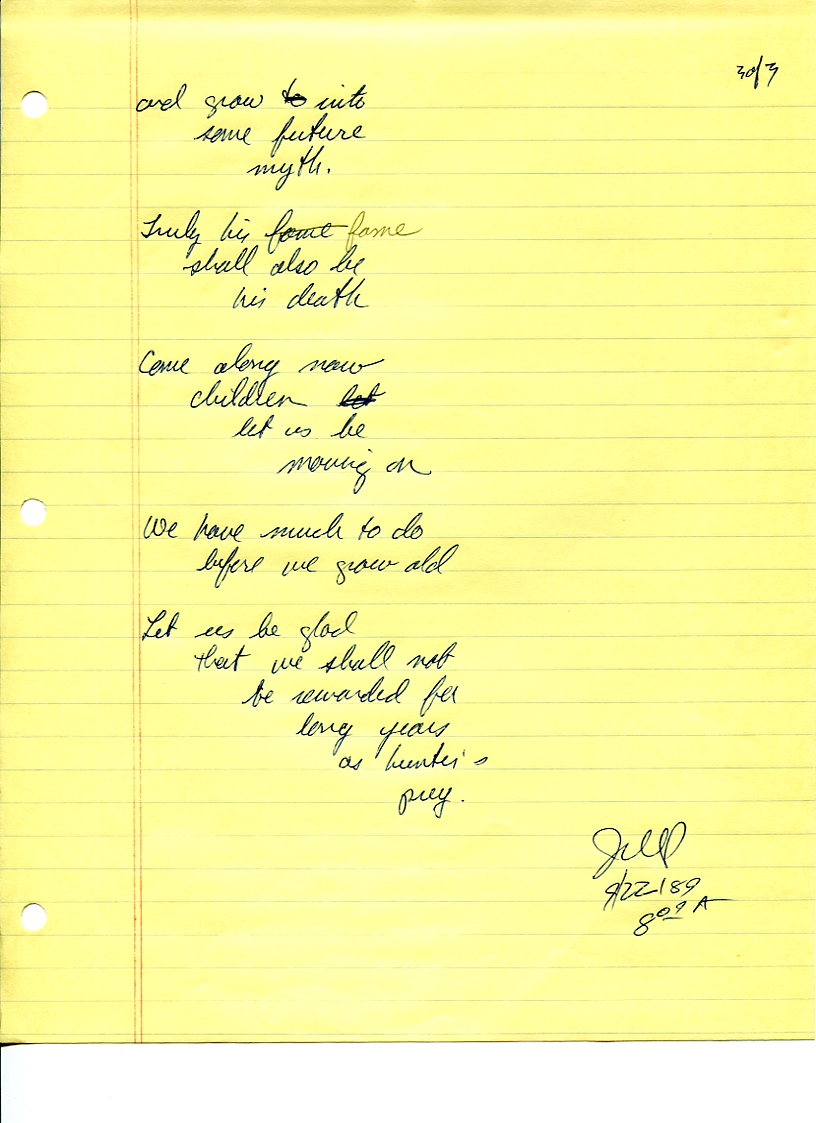 3 of 3
and grow to into
some future
myth.
Truly his fame fame
shall also be
his death
Come along now
children let
let us be
moving on
We have much to do
before we grow old
Let us be glad
that we shall not
be rewarded for
long years
as hunter's
prey.
9/22/89
8:09 A